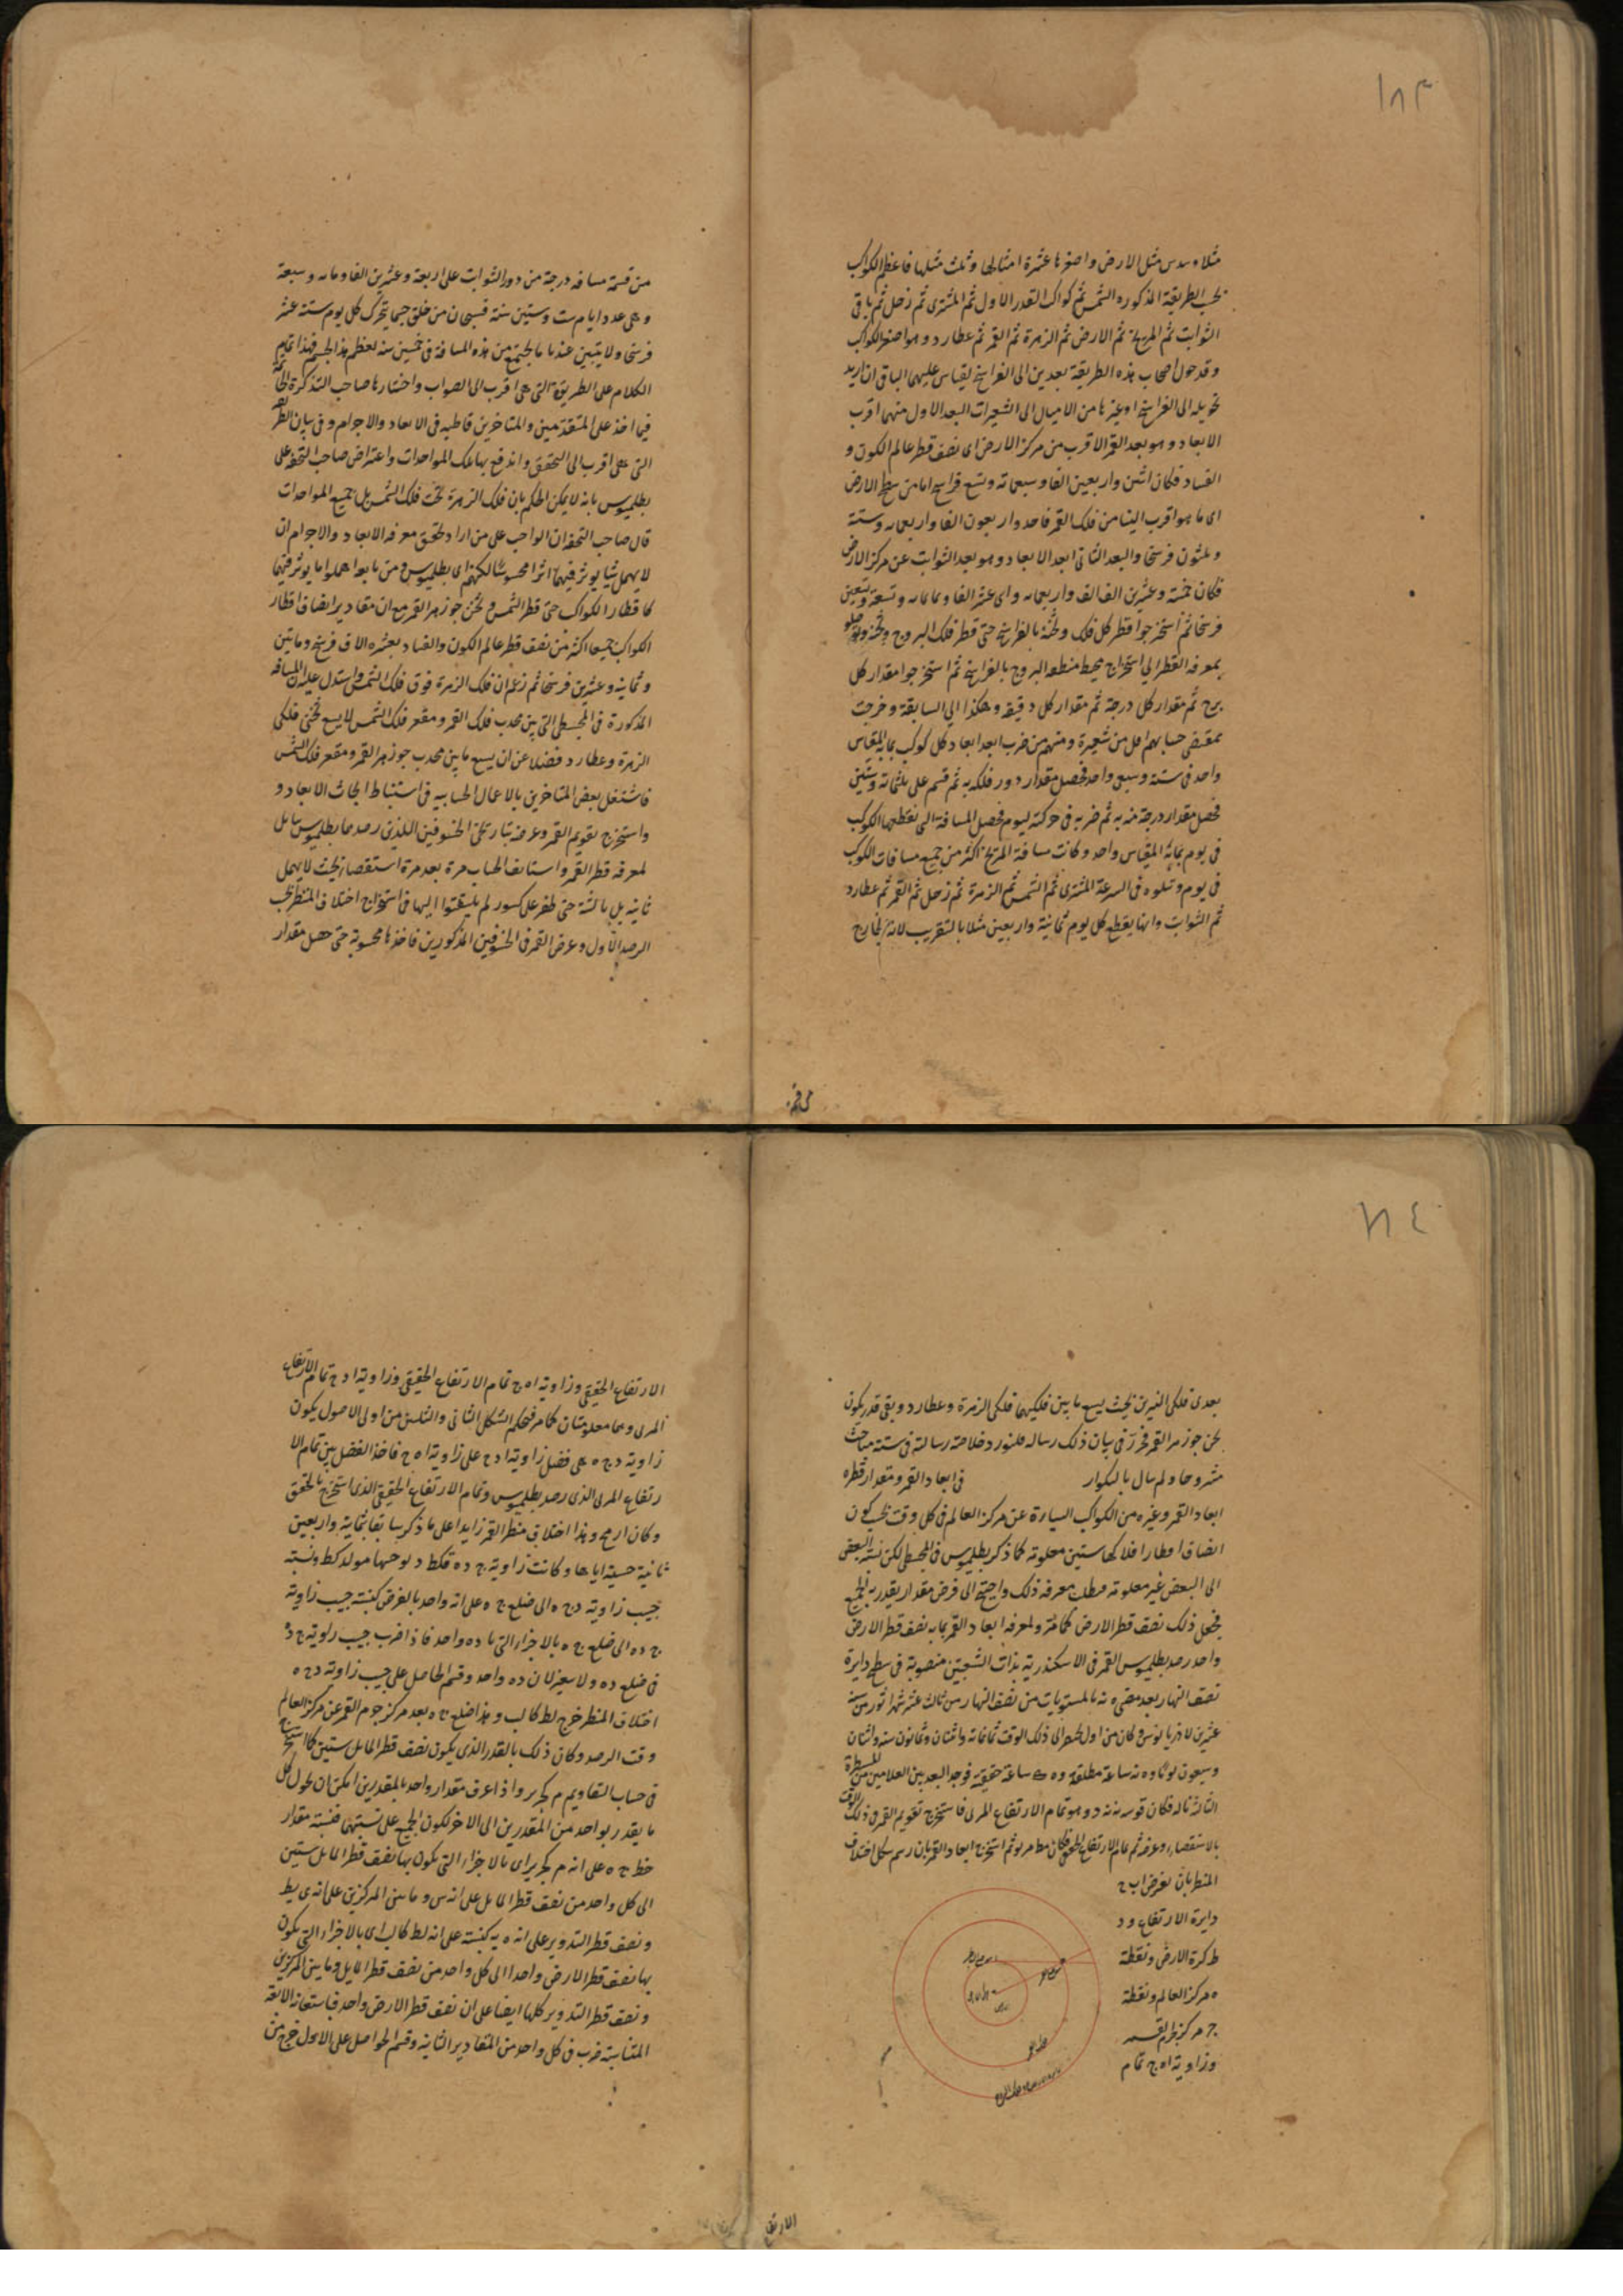 ١٨٣
مثلا وسدس مثل الارض واصغرها عشرة امثالها وثلث مثلها فاعظم الكواكب
بحسب الطريقة المذكوره الشمس ثم كواكب القدر الاول ثم المشترى ثم زحل ثم باقى
الثوابت ثم المريخ ثم الارض ثم الزهرة ثم القمر ثم عطارد وهو اصغر الكواكب
وقد حول اصحاب هذه الطريقة بعدين الى الفراسخ ليقاس عليهما الباقى ان اريد
تحويله الى الفراسخ او غيرها من الاميال الى الشعيرات البعد الاول منهما اقرب
الابعاد وهو بعد القمر الاقرب من مركز الارض اى نصف قطر عالم الكون و
الفساد فكان اثنين واربعين الفا وسبعمائة وتسع فراسخ اما من سطح الارض
اى ما هو اقرب الينا من فلك القمر فاحد واربعون الفا واربعمايه وستة
وثلثون فرسخا والبعد الثانى ابعد الابعاد وهو بعد الثوابت عن مركز الارض
فكان خمسة وعشرين الف الف واربعمايه واثنى عشر الفا وثمانمايه وتسعة وتسعين
فرسخا ثم استخرجوا قطر كل فلك وثخنه بالفراسخ حتى قطر فلك البروج وثخنه
بمعرفه القطر الى استخراج محيط منطقه البروج بالفراسخ ثم استخرجوا مقدار كل
برج ثم مقدار كل درجة ثم مقدار كل دقيقه وهكذا الى السابقة وخرجت
بمقتضى حسابهم اقل من شعيرة ومنهم من ضرب ابعد ابعاد كل كوكب بما به المقياس
واحد فى ستة وسبع واحد فحصل مقدار دور فلكه به ثم قسم على ثلثمائة وستين
فحصل مقدار درجة منه به ثم ضربه فى حركته ليوم فحصل المسافة التى يقطعها الكوكب
فى يوم بما به المقياس واحد وكانت مسافة المريخ اكثر من جميع مسافات الكواكب
فى يوم وتتلوه فى السرعة المشترى ثم الشمس ثم الزهرة ثم زحل ثم القمر ثم عطارد
ثم الثوابت وانها يقطع كل يوم ثمانية واربعين مثلا بالتقريب لانه الخارج
من قسمة
من قسمة مسافه درجة من دور الثوابت على اربعة وعشرين الفا ومايه وسبعة
وهى عدد ايام ست وستين سنة فسبحان من خلق جسما يتحرك كل يوم ستة عشر
فرسخا ولا يتبين عندنا ما يجتمع من هذه المسافة فى خمسين سنه لعظم هذا الجسم فهذا تمام
الكلام على الطريقة التى هى اقرب الى الصواب واختارها صاحب التذكرة
فيما اخذ على المتقدمين والمتاخرين قاطبه فى الابعاد والاجرام وفى بيان الطريقة
التى هى اقرب الى التحقق واندفع بها تلك المواخذات واعتراض صاحب التحفه على
بطلميوس بانه لا يمكن الحكم بان فلك الزهرة تحت فلك الشمس بل جميع المواخذات
قال صاحب التحفه ان الواجب على من اراد تحقق معرفه الابعاد والاجرام ان
لا يهمل شيا يوثر فيهما اثرا محسوسا لكنهم اى بطلميوس ومن تابعه اهملوا ما يوثر فيهما
كاقطار الكواكب حتى قطر الشمس وثخن جوزهر القمر مع ان مقادير انصاف اقطار
الكواكب جميعا اكثر من نصف قطر عالم الكون والفساد بعشره الاف فرسخ ومائتين
وثمانيه وعشرين فرسخا ثم زعم ان فلك الزهرة فوق فلك الشمس واستدل عليه ان المسافه
المذكورة فى المجسطى التى بين محدب فلك القمر ومقعر فلك الشمس لا يسع ثخنى فلكى
الزهرة وعطارد فضلا عن ان يسع ما بين محدب جوزهر القمر ومقعر فلك الشمس
فاشتغل بعض المتاخرين بالاعمال الحسابيه فى استنباط ابحاث الابعاد و
واستخرج تقويم القمر وعرضه بتاريخى الخسوفين اللذين رصدهما بطلميوس بابل
لمعرفه قطر القمر واستانف الحساب مرة بعد مرة استقصاء بحيث لا يهمل
ثانيه بل ثالثة حتى ظفر على كسور لم يلتفتوا اليها فى استخراج اختلاف المنظر بحسب
الرصد الاول وعرض القمر فى الخسوفين المذكورين فاخذها محسوبة حتى حصل مقدار
١٨٤
بعدى فلكى النيرين بحيث يسع ما بين فلكيهما فلكى الزهرة وعطارد وبقى قدر يكون
ثخن جوزهر القمر فحرر فى بيان ذلك رساله فلنورد خلاصة رسالته فى ستة مباحث
مشروحا ولم نبال بالتكرار فى ابعاد القمر ومقدار قطره
ابعاد القمر وغيره من الكواكب السيارة عن مركز العالم فى كل وقت بحسب كون
انصاف اقطار افلاكها ستين معلومة كما ذكر بطلميوس فى المجسطى لكن نسبة البعض
الى البعض غير معلومة فطلب معرفه ذلك واحتيج الى فرض مقدار يقدر به الجميع
فجعل ذلك نصف قطر الارض كما مر ولمعرفه ابعاد القمر بما به نصف قطر الارض
واحد رصد بطلميوس القمر فى الاسكندرية بذات الشعبتين منصوبة فى سطح دايرة
نصف النهار بعد مضى ه نه بالمستويات من نصف النهار من ثالث عشر شهر اثور من سنة
عشرين لادريانوس وكان من اول بخت نصر الى ذلك الوقت ثمانمائة واثنتان وثمانون سنه واثنان
وسبعون يوما و ه نه ساعة مطلقه و ه ك ساعة حقيقيه فوجد البعد بين العلامتين من المسطرة
الثالثة فكان قوسه ن نه وهو تمام الارتفاع المرئى فاستخرج تقويم القمر فى ذلك الوقت
بالاستقصاء وعرضه ثم تمام الارتفاع الحقيقى فكان مط مح ثم استخرج ابعاد القمر بان رسم شكل اختلاف
المنظر بان نفرض اب ج
دايرة الارتفاع و د
ط كرة الارض ونقطة
ه مركز العالم ونقطة
ج مركز جرم القمر
وزاوية اه ج تمام
الارتفاع
الارتفاع الحقيقى وزاوية اه ج تمام الارتفاع الحقيقى وزاوية ا د ج تمام الارتفاع
المرئى وهما معلومتان كما مر فبحكم الشكل الثانى والثلثين من اولى الاصول يكون
زاوية د ج ه هى فضل زاوية ا د ج على زاوية ا ه ج فاخذ الفضل بين تمام الا
رتفاع المرئى الذى رصد بطلميوس وتمام الارتفاع الحقيقى الذى استخرج بالتحقق
وكان ا ر مح وهذا اختلاف منظر القمر زايدا على ما ذكر سابقا بثمانية واربعين
ثانية جيبه ا يا ها وكانت زاوية ج د ه قكط د لوجيبها مولد كط ونسبة
جيب زاوية د ج ه الى ضلع ج ه على انه واحد بالفرض كنسبة جيب زاوية
ج د ه الى ضلع ج ه بالاجزاء التى بها د ه واحد فاذا ضرب جيب زاوية ج د ه
فى ضلع د ه ولا يتغير لان د ه واحد وقسم الحاصل على جيب زاوية د ج ه
اختلاف المنظر خرج لط كا لب وهذا ضلع ج ه بعد مركز جرم القمر عن مركز العالم
وقت الرصد وكان ذلك بالقدر الذى يكون نصف قطر المايل ستين كما استخرج
فى حساب التقاويم م كح ير واذا عرف مقدار واحد بالمقدرين امكن ان نحول كل
ما يقدر بواحد من المقدرين الى الاخر لكون الجميع على نسبتهما فنسبة مقدار
خط ج ه على انه م كح ير اى بالاجزاء التى يكون بها نصف قطر المايل ستين
الى كل واحد من نصف قطر المايل على انه س وما بين المركزين على انه ى يط
ونصف قطر التدوير على انه ه يه كنسبته على انه لط كا لب اى بالاجزاء التى يكون
بها نصف قطر الارض واحدا الى كل واحد من نصف قطر المايل وما بين المركزين
ونصف قطر التدوير كلها ايضا على ان نصف قطر الارض واحد فباستعانة الاربعة
المتناسبة ضرب فى كل واحد من المقادير الثانية وقسم الحواصل على الاول خرج من